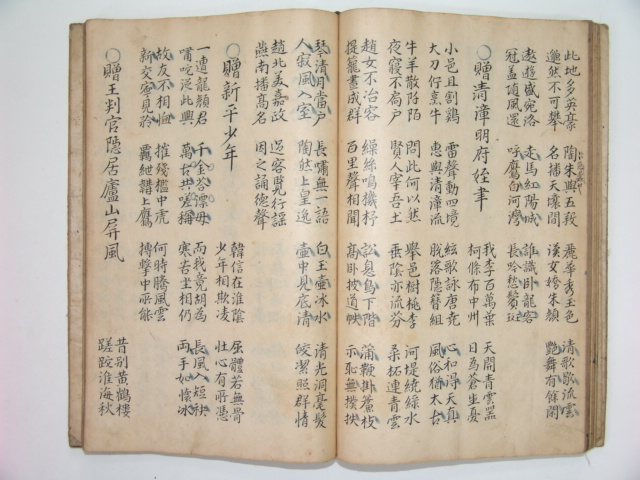 此地多英豪 陶朱與五羖 麗華秀玉色 清歌歌流雲
邈然不可攀 名播天壤間 漢女嬌朱顏 艷舞有餘閑
遨遊盛宛洛 走馬紅陽城 誰識臥龍客
冠蓋隨風還 呼鷹白河灣 長吟愁鬢斑
○贈清漳明府姪聿 我李百萬葉 天開青雲器
柯條布中州 日爲蒼生憂
小邑且割雞 雷聲動四境 絃歌詠唐堯 心和得天真
大刀佇烹牛 惠與清漳流 脫落隱簪組 風俗猶太古
牛羊散阡陌 問此何以然 舉邑樹桃李 河堤繞綠水
夜寢不扃戶 賢人宰吾土 垂陰亦流芬 桑柘連青雲
趙女不冶容 繰絲鳴機杼 訟息鳥下階 蒲鞭掛簷枝
提籠晝成群 百里聲相聞 高臥披道帙 示恥無撲抶
琴清月當戶 長嘯無一語 白玉壺冰水 清光洞毫髮
人寂風入室 陶然上皇逸 壺中見底清 皎潔照群情
趙北美嘉政 過客覽行謠
燕南播高名 因之誦德聲
○贈新平少年 韓信在淮陰 屈體若無骨
少年相欺凌 壯心有所憑
一遭龍顏君 千金答漂母 而我竟胡爲 長風入短袂
嘯咤從此興 萬古共嗟稱 寒苦坐相仍 兩手如懷冰
故友不相恤 摧殘檻中虎 何時騰風雲
新交寧見矜 羈紲韝上鷹 搏擊申所能
○贈王判官隱居廬山屏風 昔別黃鶴樓
蹉跎淮海秋